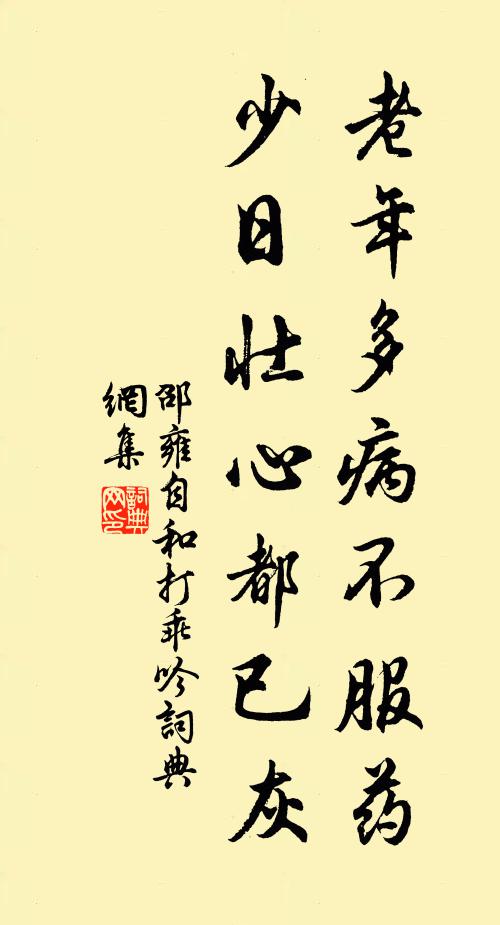 老年多病不服药
少日壮心都已灰
邵雍自和打乖吟詞典
網集
詞典网印